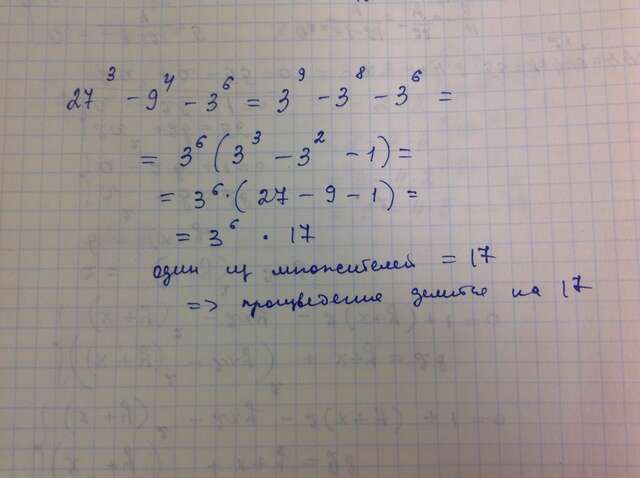 27³ - 9⁴ - 3⁶ = 3⁹ - 3⁸ - 3⁶ =
= 3⁶ (3³ - 3² - 1) =
= 3⁶ · ( 27 - 9 - 1) =
= 3⁶ · 17
один из множителей = 17
=> произведение делится на 17